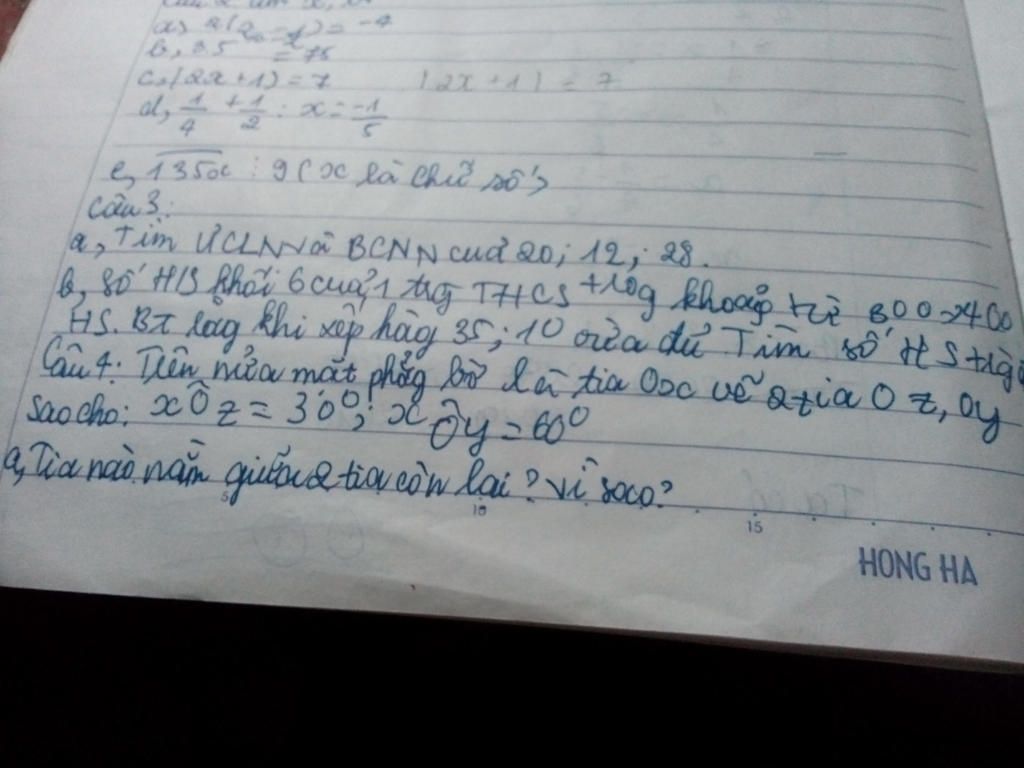 a, 2(2x - 1) = -4
b, 35 = 75
c, |2x+1| = 7 |2x+1| = 7
d, 1/4 + 1/2 : x = -1/5
e, 135x ⋮ 9 (x là chữ số)
Câu 3:
a, Tìm ƯCLN và BCNN cuả 20; 12; 28.
b, Số HS khối 6 cuả 1 trg THCS +rog khoảg từ 300 → 400
HS. BT rằg khi xếp hàg 35; 10 vừa đủ Tìm số HS
Câu 4: Trên nửa mặt phẳg bờ là tia Ox vẽ 2 tia Oz, Oy
sao cho: xÔz = 30⁰; xÔy = 60⁰
a, Tia nào nằm giữa 2 tia còn lại? Vì sao?
5 10 15
HONG HA